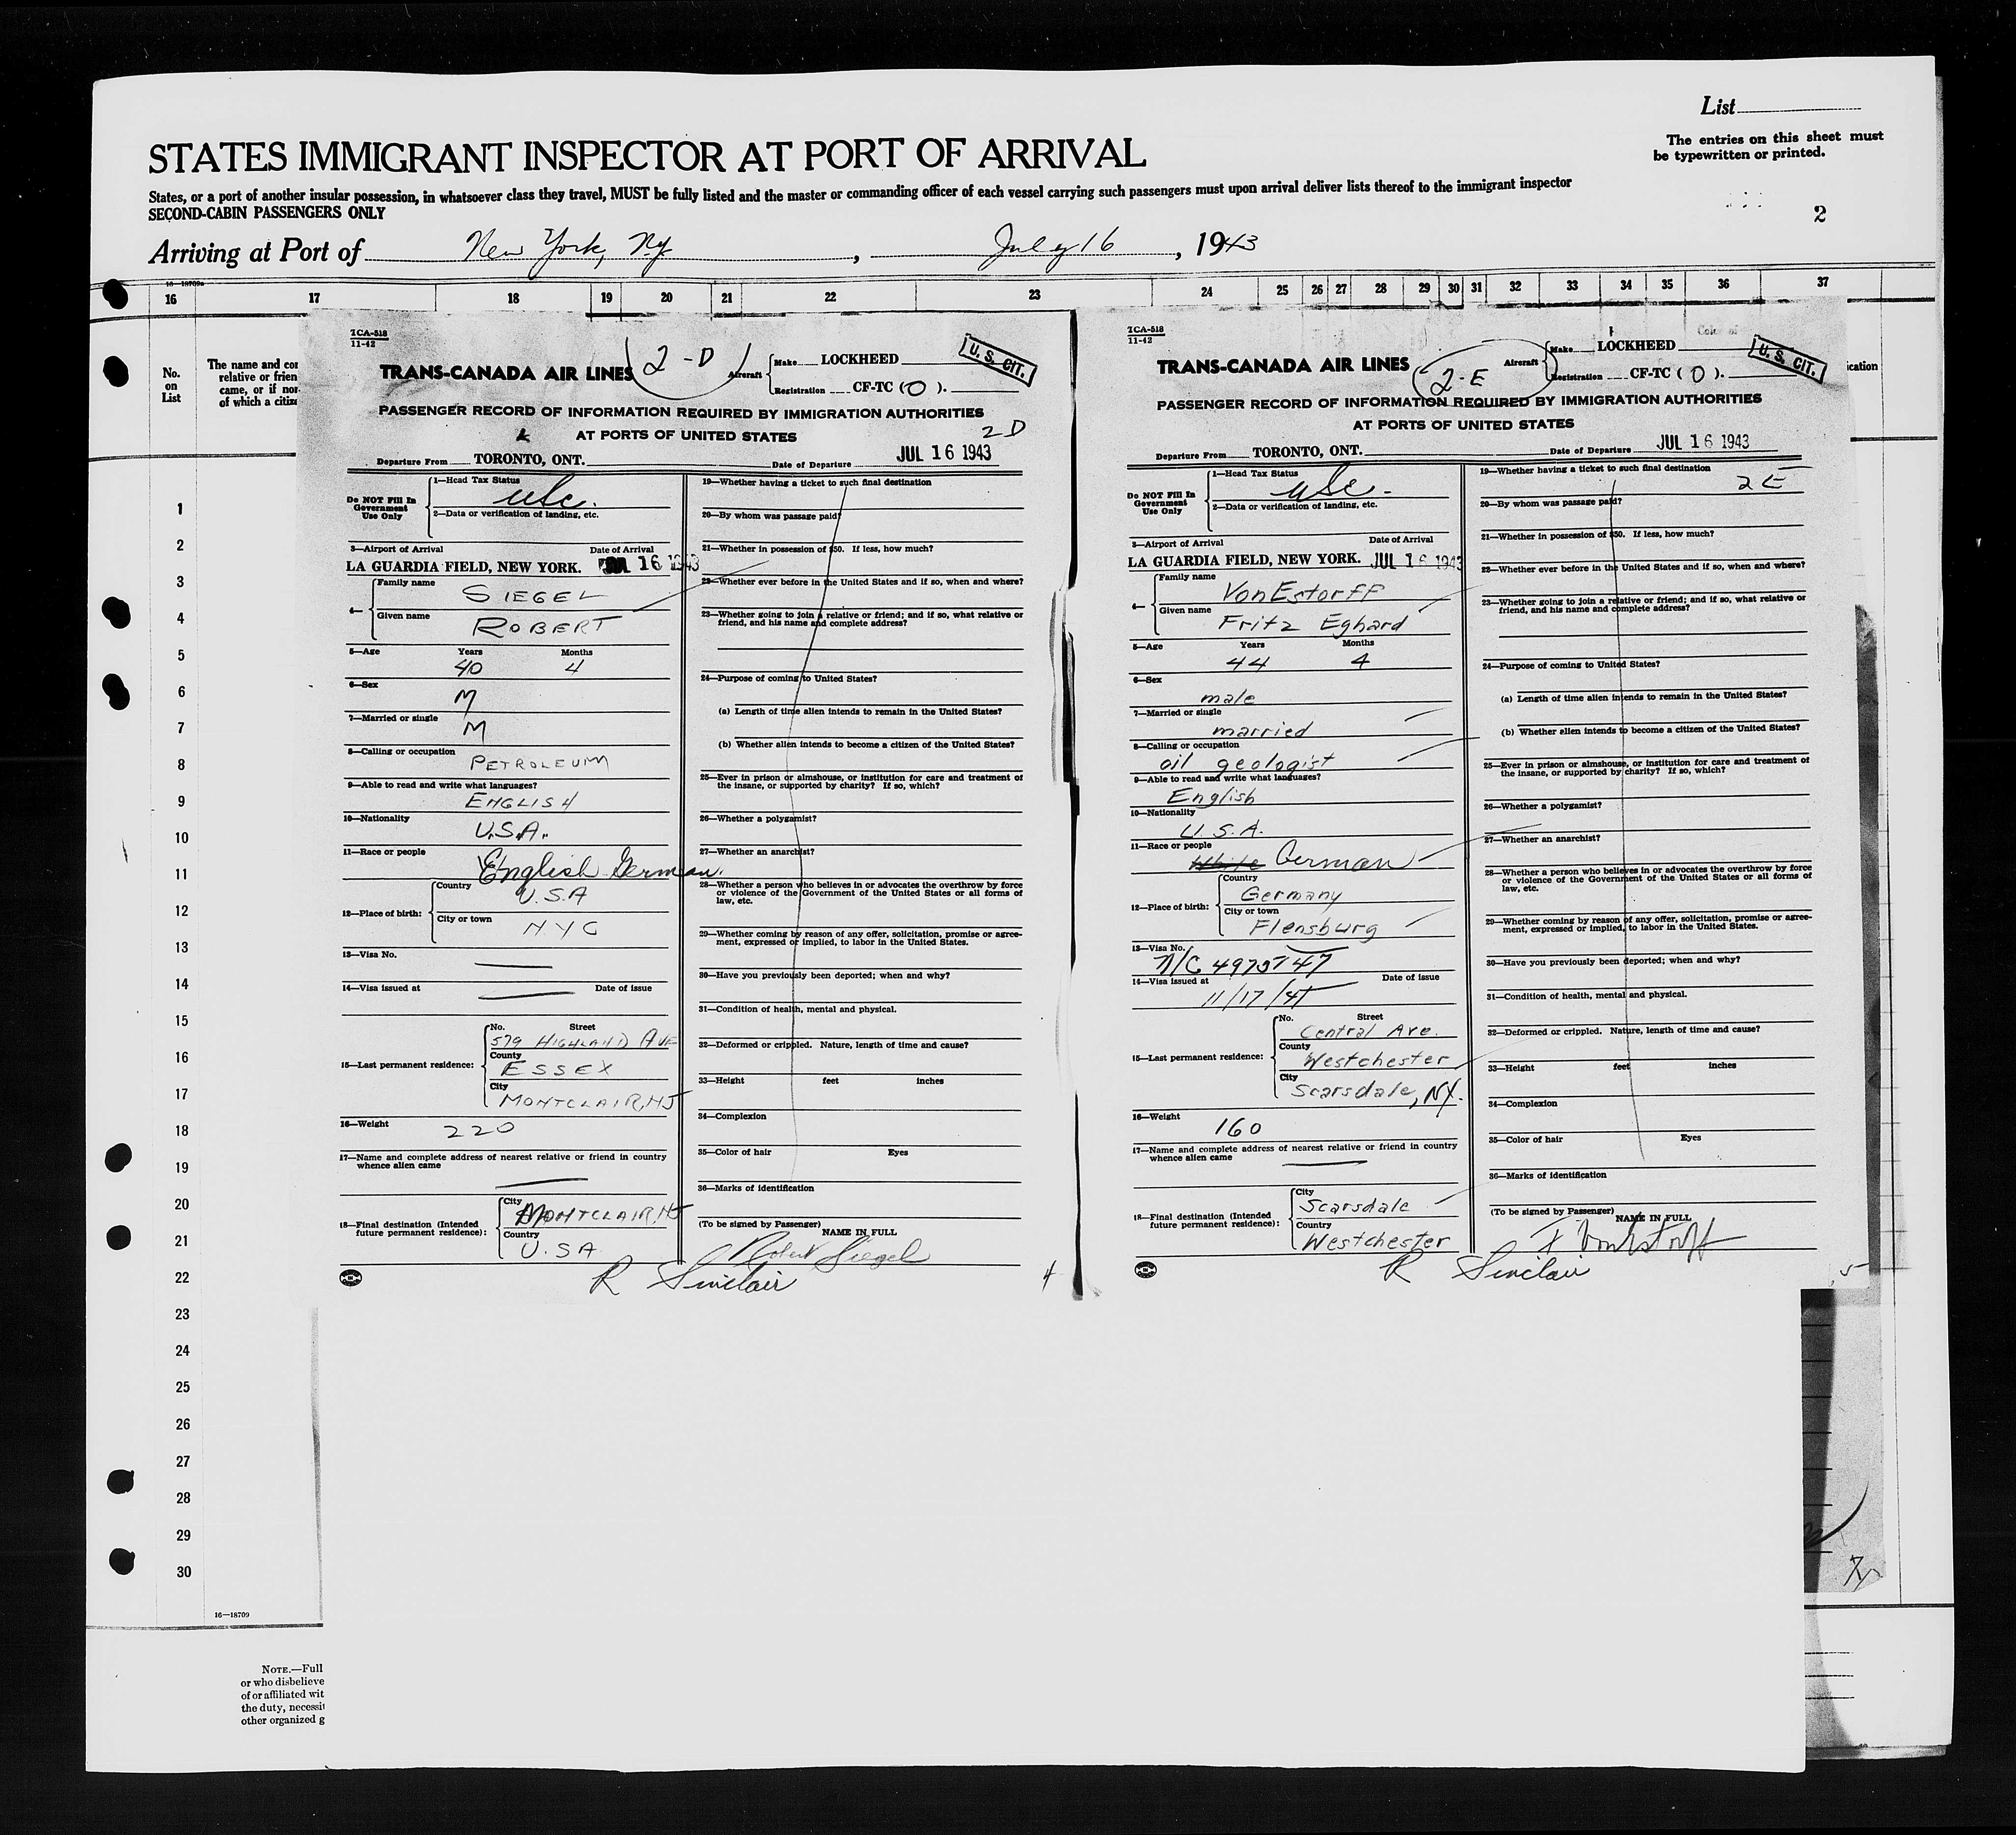 List
The entries on this sheet must
be typewritten or printed.
STATES IMMIGRANT INSPECTOR AT PORT OF ARRIVAL
States, or a port of another insular possession, in whatsoever class they travel, MUST be fully listed and the master or commanding officer of each vessel carrying such passengers must upon arrival deliver lists thereof to the immigrant inspector
SECOND-CABIN PASSENGERS ONLY
2
Arriving at Port of New York, N.Y. , July 16 , 1943
16-18709a
16 17 18 19 20 21 22 23 24 25 26 27 28 29 30 31 32 33 34 35 36 37
No.
on
List
The name and con
relative or frien
came, or if nor
of which a citize
Color of
ication
1
2
3
4
5
6
7
8
9
10
11
12
13
14
15
16
17
18
19
20
21
22
23
24
25
26
27
28
29
30
16—18709
NOTE.—Full
or who disbelieve
of or affiliated wit
the duty, necessit
other organized g
TCA-518
11-42
TRANS-CANADA AIR LINES
2-D
Aircraft
Make LOCKHEED
Registration CF-TC (O).
U. S. CIT.
PASSENGER RECORD OF INFORMATION REQUIRED BY IMMIGRATION AUTHORITIES
AT PORTS OF UNITED STATES
2D
Departure From TORONTO, ONT. Date of Departure JUL 16 1943
Do NOT Fill In
Government
Use Only
1—Head Tax Status
USC.
2—Data or verification of landing, etc.
3—Airport of Arrival Date of Arrival
LA GUARDIA FIELD, NEW YORK. JUL 16 1943
4—
Family name
SIEGEL
Given name
ROBERT
5—Age Years Months
40 4
6—Sex
M
7—Married or single
M
8—Calling or occupation
PETROLEUM
9—Able to read and write what languages?
ENGLISH
10—Nationality
U.S.A.
11—Race or people
English German.
12—Place of birth:
Country
U.S.A
City or town
NYC
13—Visa No.
14—Visa issued at Date of issue
15—Last permanent residence:
No. Street
579 HIGHLAND AVE
County
ESSEX
City
MONTCLAIR, NJ
16—Weight
220
17—Name and complete address of nearest relative or friend in country
whence alien came
18—Final destination (Intended
future permanent residence):
City
MONTCLAIR, NJ
Country
U.S.A
19—Whether having a ticket to such final destination
20—By whom was passage paid?
21—Whether in possession of $50. If less, how much?
22—Whether ever before in the United States and if so, when and where?
23—Whether going to join a relative or friend; and if so, what relative or
friend, and his name and complete address?
24—Purpose of coming to United States?
(a) Length of time alien intends to remain in the United States?
(b) Whether alien intends to become a citizen of the United States?
25—Ever in prison or almshouse, or institution for care and treatment of
the insane, or supported by charity? If so, which?
26—Whether a polygamist?
27—Whether an anarchist?
28—Whether a person who believes in or advocates the overthrow by force
or violence of the Government of the United States or all forms of
law, etc.
29—Whether coming by reason of any offer, solicitation, promise or agree-
ment, expressed or implied, to labor in the United States.
30—Have you previously been deported; when and why?
31—Condition of health, mental and physical.
32—Deformed or crippled. Nature, length of time and cause?
33—Height feet inches
34—Complexion
35—Color of hair Eyes
36—Marks of identification
(To be signed by Passenger)
NAME IN FULL
Robert Siegel
R Sinclair
4
TCA-518
11-42
TRANS-CANADA AIR LINES
2-E
Aircraft
Make LOCKHEED
Registration CF-TC (O).
U. S. CIT.
PASSENGER RECORD OF INFORMATION REQUIRED BY IMMIGRATION AUTHORITIES
AT PORTS OF UNITED STATES
Departure From TORONTO, ONT. Date of Departure JUL 16 1943
Do NOT Fill In
Government
Use Only
1—Head Tax Status
USC.
2—Data or verification of landing, etc.
3—Airport of Arrival Date of Arrival
LA GUARDIA FIELD, NEW YORK. JUL 16 1943
4—
Family name
VonEstorff
Given name
Fritz Eghard
5—Age Years Months
44 4
6—Sex
male
7—Married or single
married
8—Calling or occupation
oil geologist
9—Able to read and write what languages?
English
10—Nationality
U.S.A.
11—Race or people
White German
12—Place of birth:
Country
Germany
City or town
Flensburg
13—Visa No.
N/C
14—Visa issued at Date of issue
11/17/41
15—Last permanent residence:
No. Street
Central Ave.
County
Westchester
City
Scarsdale, NY.
16—Weight
160
17—Name and complete address of nearest relative or friend in country
whence alien came
18—Final destination (Intended
future permanent residence):
City
Scarsdale
Country
Westchester
19—Whether having a ticket to such final destination
2E
20—By whom was passage paid?
21—Whether in possession of $50. If less, how much?
22—Whether ever before in the United States and if so, when and where?
23—Whether going to join a relative or friend; and if so, what relative or
friend, and his name and complete address?
24—Purpose of coming to United States?
(a) Length of time alien intends to remain in the United States?
(b) Whether alien intends to become a citizen of the United States?
25—Ever in prison or almshouse, or institution for care and treatment of
the insane, or supported by charity? If so, which?
26—Whether a polygamist?
27—Whether an anarchist?
28—Whether a person who believes in or advocates the overthrow by force
or violence of the Government of the United States or all forms of
law, etc.
29—Whether coming by reason of any offer, solicitation, promise or agree-
ment, expressed or implied, to labor in the United States.
30—Have you previously been deported; when and why?
31—Condition of health, mental and physical.
32—Deformed or crippled. Nature, length of time and cause?
33—Height feet inches
34—Complexion
35—Color of hair Eyes
36—Marks of identification
(To be signed by Passenger)
NAME IN FULL
F VonEstorff
R Sinclair
5